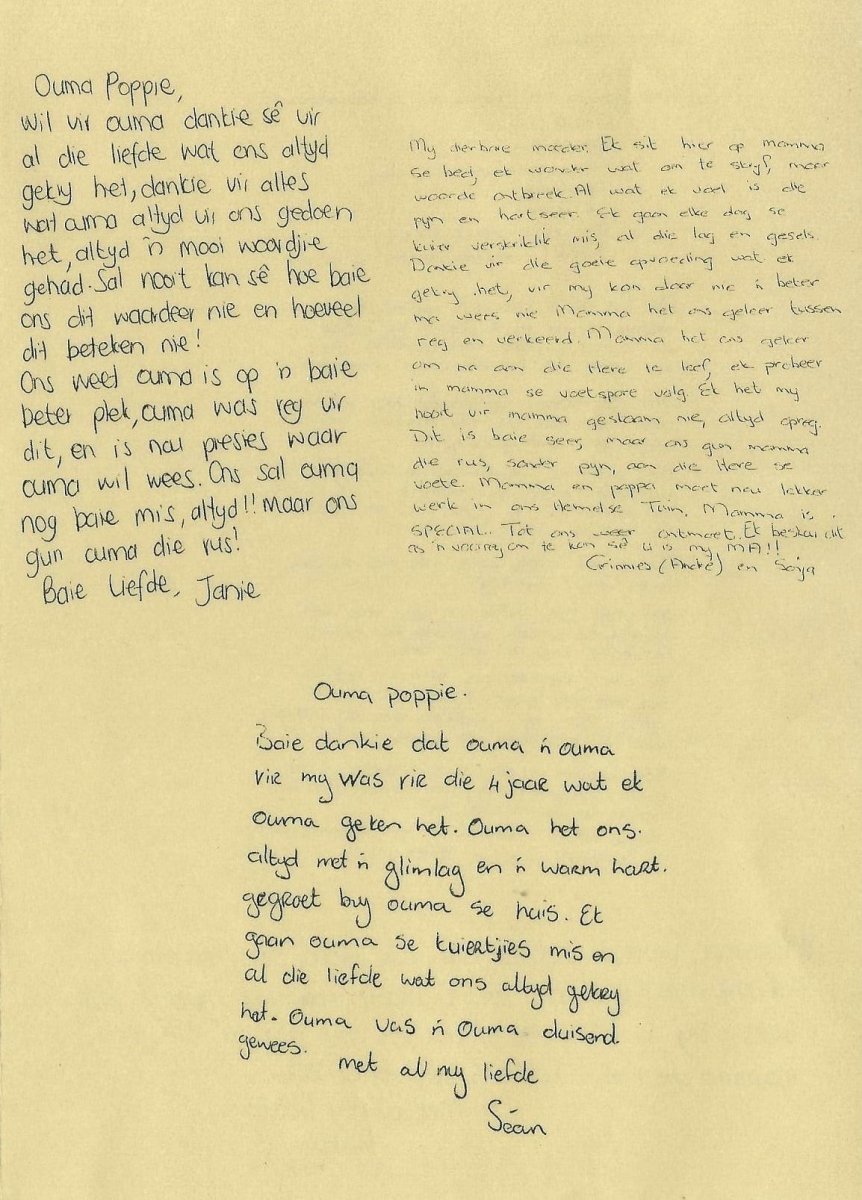 Ouma Poppie,
wil vir ouma dankie sê vir
al die liefde wat ons altyd
gekry het, dankie vir alles
wat ouma altyd vir ons gedoen
het, altyd 'n mooi woordjie
gehad. Sal nooit kan sê hoe baie
ons dit waardeer nie en hoeveel
dit beteken nie!
Ons weet ouma is op 'n baie
beter plek, ouma was reg vir
dit, en is nou presies waar
ouma wil wees. Ons sal ouma
nog baie mis, altyd!! Maar ons
gun ouma die rus!
Baie liefde, Janie
My dierbare moeder, Ek sit hier op mamma
se bed, ek wonder wat om te skryf, maar
woorde ontbreek. Al wat ek voel is die
pyn en hartseer. Ek gaan elke dag se
kuier verskriklik mis, al die lag en gesels.
Dankie vir die goeie opvoeding wat ek
gekry het, vir my kon daar nie 'n beter
ma wees nie Mamma het ons geleer tussen
reg en verkeerd. Mamma het ons geleer
om na aan die Here te leef, ek probeer
in mamma se voetspore volg. Ek het my
nooit vir mamma geskaam nie, altyd opreg.
Dit is baie seer, maar ons gun mamma
die rus, sonder pyn, aan die Here se
voete. Mamma en pappa moet nou lekker
werk in ons Hemelse Tuin. Mamma is
SPECIAL. Tot ons weer ontmoet. Ek beskou dit
as 'n voorreg om te kan sê u is my MA!!
(André) en Sonja
Ouma poppie.
Baie dankie dat ouma 'n ouma
vir my was vir die 4 jaar wat ek
ouma geken het. Ouma het ons.
altyd met 'n glimlag en 'n warm hart.
gegroet by ouma se huis. Ek
gaan ouma se kuiertjies mis en
al die liefde wat ons altyd gekry
het. Ouma vas 'n Ouma duisend.
gewees.
met al my liefde
Séan